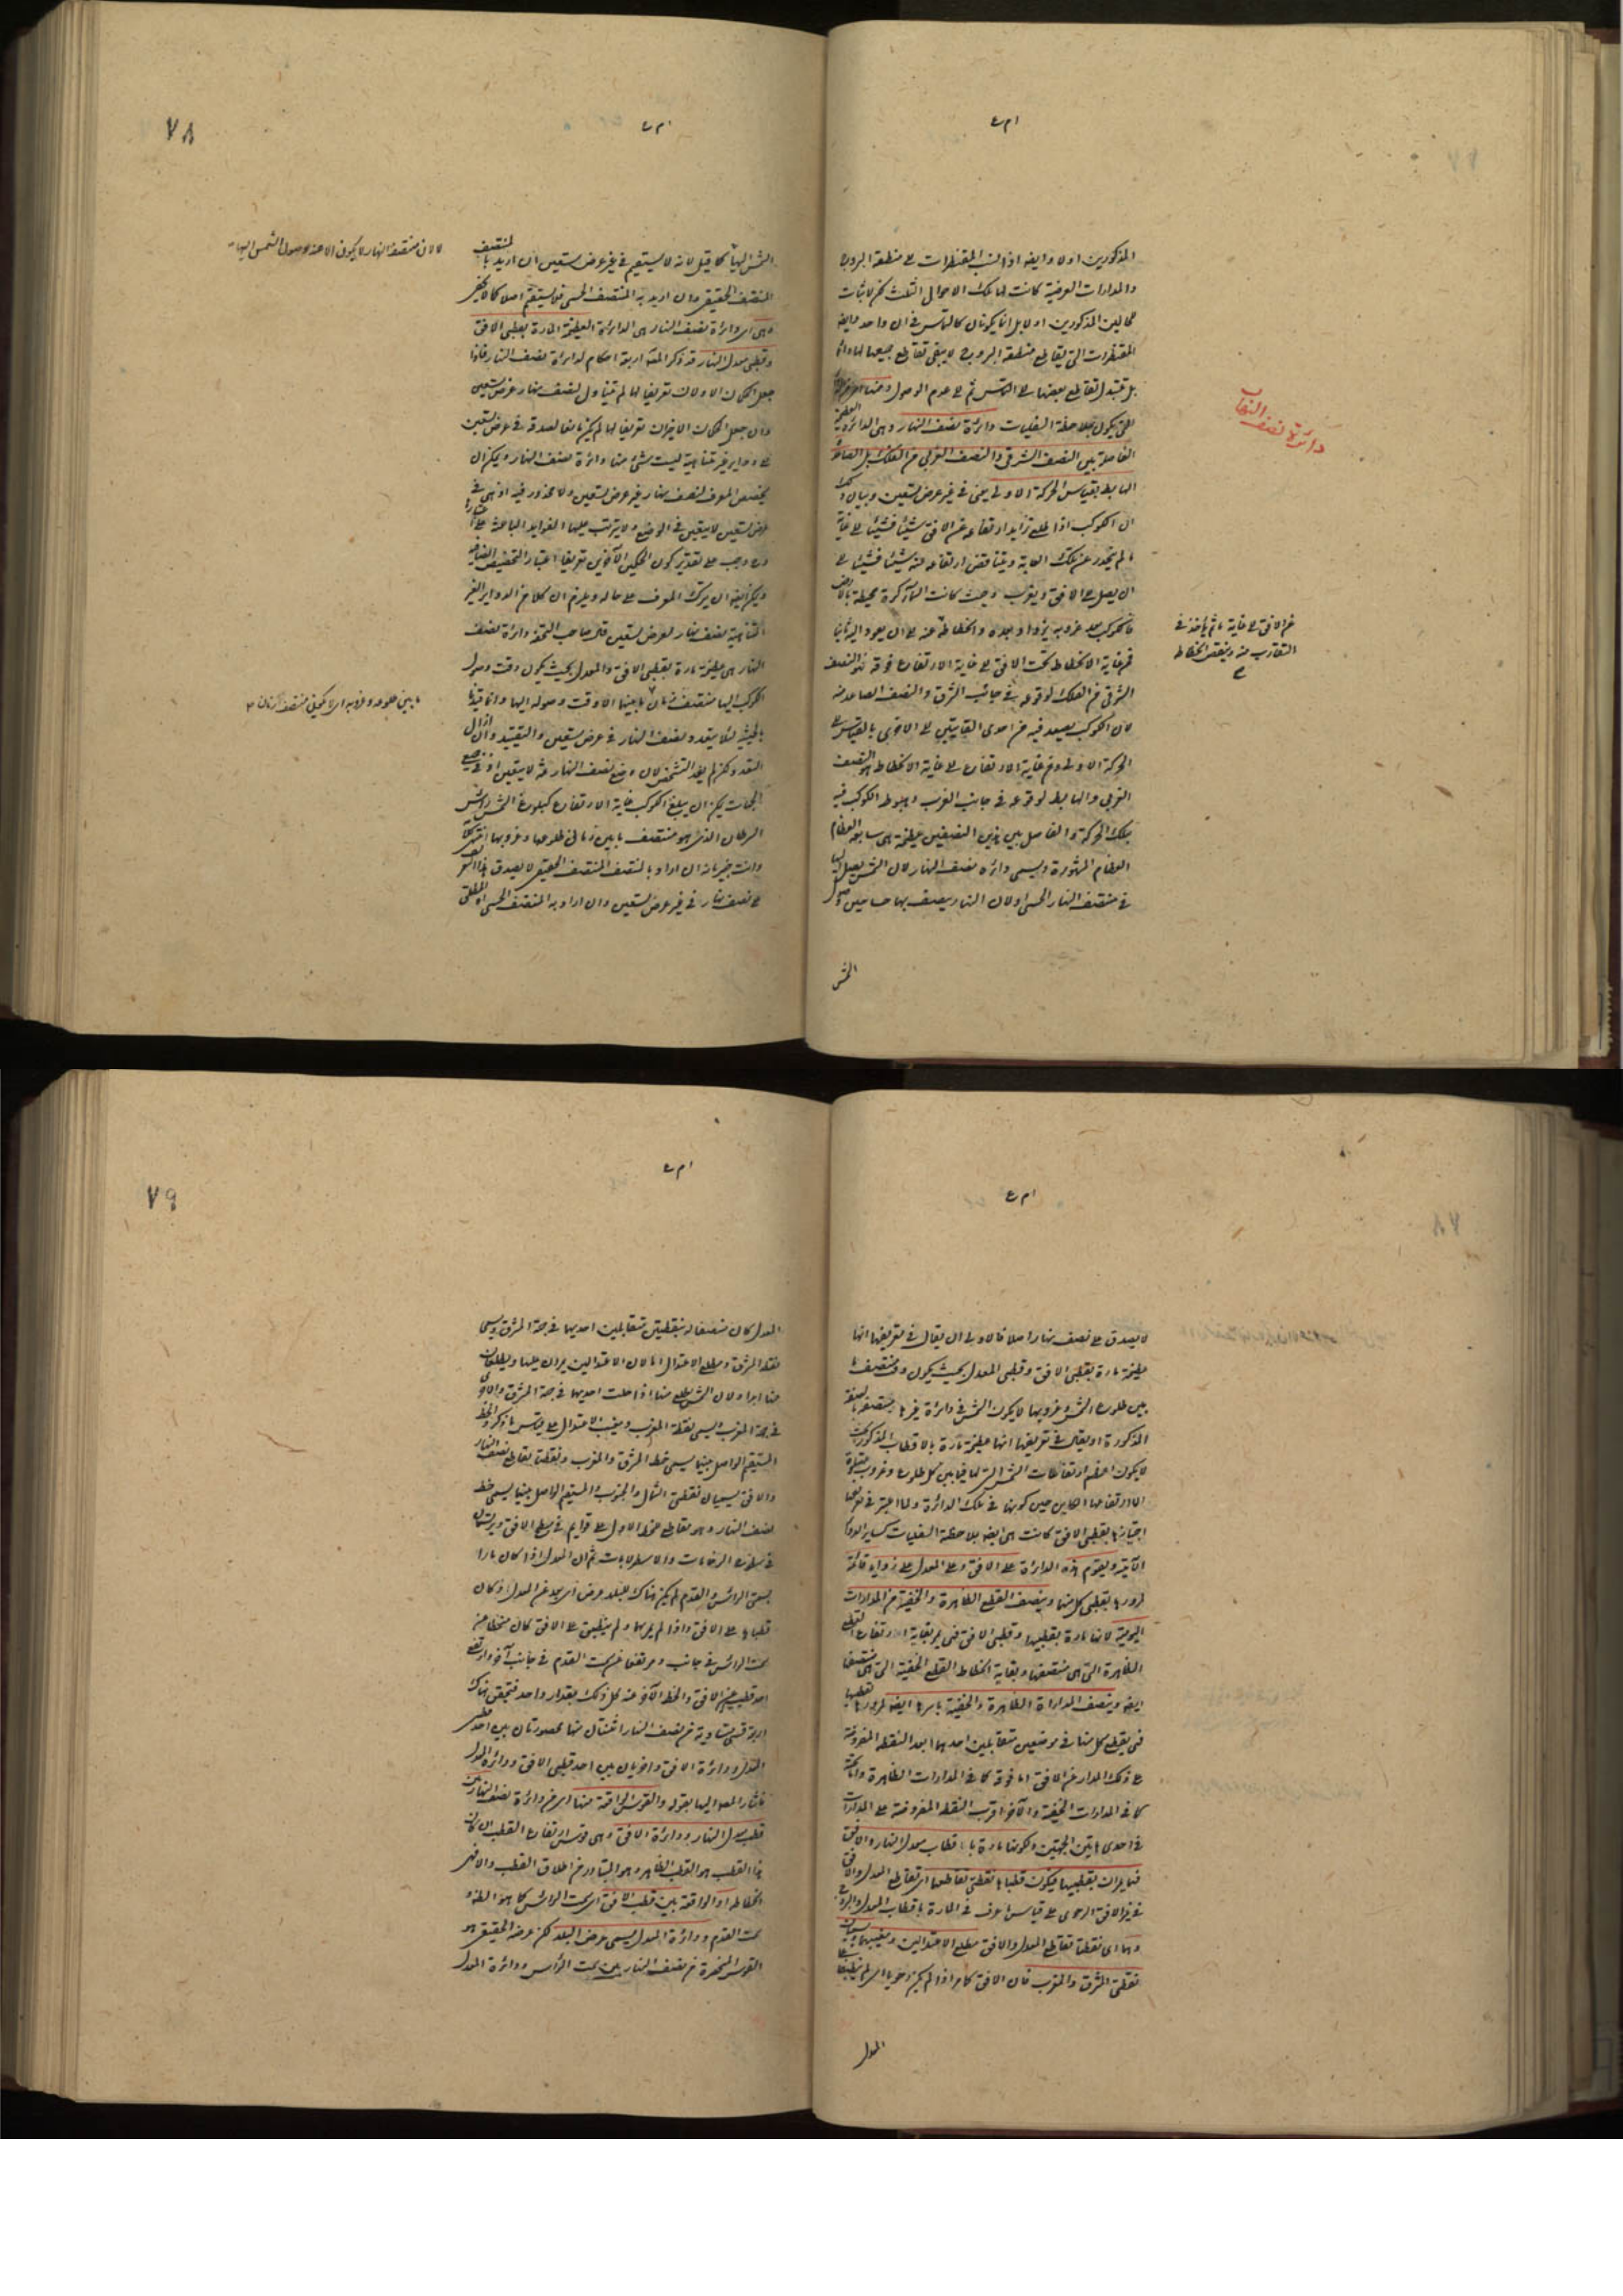 المذكورين اولا وايضا اذا نسب المقنطرات الى منطقة البروج
والمدارات العرضية كانت لها تلك الاحوال الثلث لكن لا ثبات
للحالين المذكورين اولا بل انما يكونان كالتماس في ان واحد وايضا
المقنطرات التي يقاطع منطقة البروج لا يبقى تقاطع جميعها لها دائما
بل تتبدل تقاطع بعضها الى التماس ثم الى عدم الوصول ومنها
التي يكون بملاحظة السفليات دائرة نصف النهار وهي الدائرة العظيمة
الفاصلة بين النصف الشرقي والنصف الغربي من الفلك بل الصاعد
الهابط بقياس الحركة الاولى يعني في غير عرض تسعين وبيان ذلك
ان الكوكب اذا طلع تزايد ارتفاعه عن الافق شيئا فشيئا الى غاية
ما ثم ينحدر عن تلك الغاية ويتناقص ارتفاعه منه شيئا فشيئا الى
ان يصل الى الافق ويغرب وحيث كانت السماء كرة محيطة بالارض
فالكوكب بعد غروبه يزداد بعده وانحطاطه عنه الى ان يعود اليه ثانيا
فمن غاية الانحطاط تحت الافق الى غاية الارتفاع فوقه هو النصف
الشرقي من الفلك لوقوعه في جانب الشرق والنصف الصاعد منه
لان الكوكب يصعد فيه من احدى الغايتين الى الاخرى بالقياس الى
الحركة الاولى ومن غاية الارتفاع الى غاية الانحطاط هو النصف
الغربي والهابط لوقوعه في جانب الغرب وهبوط الكوكب فيه
بتلك الحركة والفاصل بين هذين النصفين عظيمة هي سابعة العظام
العظام المشهورة ويسمى دائرة نصف النهار لان الشمس يصل اليها
في منتصف النهار الحسي او لان النهار ينصف بها حسا حين وصول
الشمس
دائرة نصف النهار
عن الافق الى غاية ما ثم ياخذ في
التقارب منه وينقص انحطاطه
٧٨
لا لان منتصف النهار لا يكون الا عند وصول الشمس اليها
الشمس اليها كما قيل لانه لا يستقيم في غير عرض تسعين ان اريد بالمنتصف
المنتصف الحقيقي وان اريد به المنتصف الحسي فلا يستقيم اصلا كما لا يخفى
وهي اي دائرة نصف النهار هي الدائرة العظيمة المارة بقطبي الافق
وقطبي معدل النهار قد ذكر المصنف اربعة احكام لدائرة نصف النهار فاذا
جعل الحكمان الاولان تعريفا لها لم يتناول نصف نهار عرض تسعين
وان جعل الحكمان الاخيران تعريفا لها لم يكن مانعا لصدقه في عرض تسعين
على دواير غير متناهية ليست شيئا منها دائرة نصف النهار ويمكن ان
يخصص المعرف بنصف نهار غير عرض تسعين ولا محذور فيه اذ هي في
عرض تسعين لا يتعين في الوضع ولا يترتب عليها الفوايد الباعثة على اعتبارها
ويمكن ايضا ان يترك المعرف على حاله ويلزم ان كلا من الدواير الغير
المتناهية نصف نهار لعرض تسعين قال صاحب التحفة دائرة نصف
النهار هي عظيمة مارة بقطبي الافق والمعدل بحيث يكون وقت وصول
الكوكب اليها منتصف زمان ما بينهما الا وقت وصوله اليها وانما قيدنا
بالحيثية لئلا يتعدد نصف النهار في عرض تسعين والتقييد وان ازال
التعدد لكن لم يفد التشخص لان وضع نصف النهار ثمة لا يتعين اذ في جميع
الجهات يمكن ان يبلغ الكوكب غاية الارتفاع كبلوغ الشمس راس
السرطان الذي هو منتصف ما بين زماني طلوعها وغروبها انتهى كلامه
وانت خبير بانه ان اراد بالمنتصف المنتصف الحقيقي لا يصدق هذا التعريف
على نصف نهار في غير عرض تسعين وان اراد به المنتصف الحسي او المطلق
ما بين طلوعه وغروبه اي لا يكون منتصف زمان
لا يصدق على نصف نهار اصلا فالاولى ان يقال في تعريفها انها
عظيمة مارة بقطبي الافق وقطبي المعدل بحيث يكون وقت منتصف ما
بين طلوع الشمس وغروبها لا يكون الشمس في دائرة غيرها
المذكورة او يقال في تعريفها انها عظيمة مارة بالاقطاب المذكورة بحيث
لا يكون اعظم ارتفاعات الشمس التي لها فيما بين كل طلوع وغروب
الا ارتفاعها الحاصل حين كونها في تلك الدائرة ولما اعتبر في تعريفها
اجتيازها بقطبي الافق كانت هي ايضا بملاحظة السفليات كساير الدواير
الآتية ويقوم هذه الدائرة على الافق وعلى المعدل على زوايا قائمة
لمرورها بقطبي كل منهما وينصف القطع الظاهرة والخفية من المدارات
اليومية لانها مارة بقطبيها وقطبي الافق فهي تمر بغاية ارتفاع القطع
الظاهرة التي هي منتصفها وبغاية انحطاط القطع الخفية التي هي منتصفها
ايضا وينصف المدارات الظاهرة والخفية باسرها ايضا لمرورها بقطبيها
فهي يقطع كل منها في موضعين متقابلين احدهما ابعد النقط المفروضة
على ذلك المدار عن الافق اما فوقه كما في المدارات الظاهرة واما تحته
كما في المدارات الخفية والآخر اقرب النقط المفروضة على المدارات
في احدى هاتين الجهتين ولكونها مارة باقطاب معدل النهار والافق
فهما يمران بقطبيها فيكون قطباها نقطتي تقاطعهما اي تقاطع المعدل والافق
في غير الافق الرحوي على قياس ما عرف في المارة باقطاب المعدل والبروج
وهما اي نقطتا تقاطع المعدل والافق مطلع الاعتدالين ومغيبهما ويسميان
نقطتي المشرق والمغرب فان الافق كما مر اذا لم يكن رحويا اي لم ينطبق على
المعدل
٧٩
المعدل كان منصفا له بنقطتين متقابلتين احديهما في جهة المشرق ويسمى
نقطة المشرق ومطلع الاعتدال اما لان الاعتدالين يمران عليها ويطلعان
منها ابدا او لان الشمس يطلع منها اذا حلت احديهما في جهة المشرق والاخرى
في جهة المغرب يسمى نقطة المغرب ومغيب الاعتدال على قياس ما ذكر والخط
المستقيم الواصل بينهما يسمى خط المشرق والمغرب ونقطتا تقاطع نصف النهار
والافق يسميان نقطتي الشمال والجنوب والمستقيم الواصل بينهما يسمى خط
نصف النهار وهو يقاطع الخط الاول على قوايم في سطح الافق ويرسمان
في سطوح الرخامات والاسطرلابات ثم ان المعدل اذا كان مارا
بسمتي الراس والقدم لم يكن هناك للبلد عرض اي بعد عن المعدل وكان
قطباها على الافق واذا لم يمر بهما ولم ينطبق على الافق كان منحطا عن
سمت الراس في جانب ومرتفعا عن سمت القدم في جانب آخر وارتفع
احد قطبيه عن الافق وانحط الآخر عنه كل ذلك بمقدار واحد فتحقق هناك
اربع قسي متساوية من نصف النهار اثنتان منها محصورتان بين احد قطبي
المعدل ودائرة الافق واخريان بين احد قطبي الافق ودائرة المعدل
فاشار المص اليها بقوله والقوس الواقعة منها اي من دائرة نصف النهار بين
قطب معدل النهار ودائرة الافق وهي قوس ارتفاع القطب ان كان
هذا القطب هو القطب الظاهر وهو المتبادر من اطلاق القطب والا فهي
انحطاطه او الواقعة بين قطب الافق اي سمت الراس كما هو الظاهر او
سمت القدم ودائرة المعدل يسمى عرض البلد لكن عرضه الحقيقي هو
القوس المنحصرة من نصف النهار بين سمت الراس ودائرة المعدل